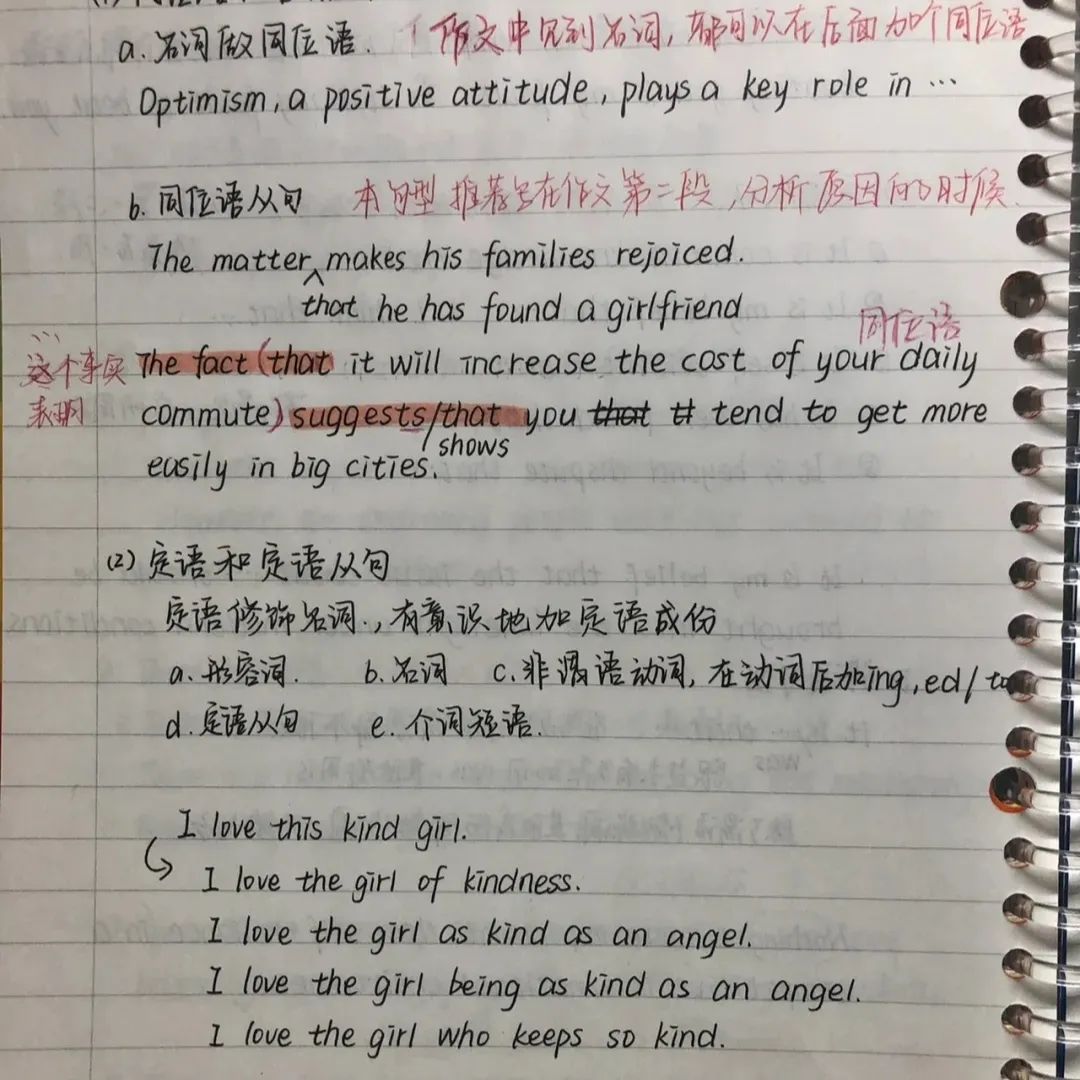 a. 名词做同位语. (作文中见到名词, 都可以在后面加个同位语
Optimism, a positive attitude, plays a key role in …
b. 同位语从句 本句型推荐写在作文第二段, 分析原因的时候.
The matter makes his families rejoiced.
that he has found a girlfriend
同位语
这个事实 The fact (that it will increase the cost of your daily
表明 commute) suggests/that you that it tend to get more
shows
easily in big cities.
(2) 定语和定语从句
定语修饰名词., 有意识地加定语成份
a. 形容词. b. 名词 c. 非谓语动词, 在动词后加ing, ed / to
d. 定语从句 e. 介词短语.
I love this kind girl.
I love the girl of kindness.
I love the girl as kind as an angel.
I love the girl being as kind as an angel.
I love the girl who keeps so kind.